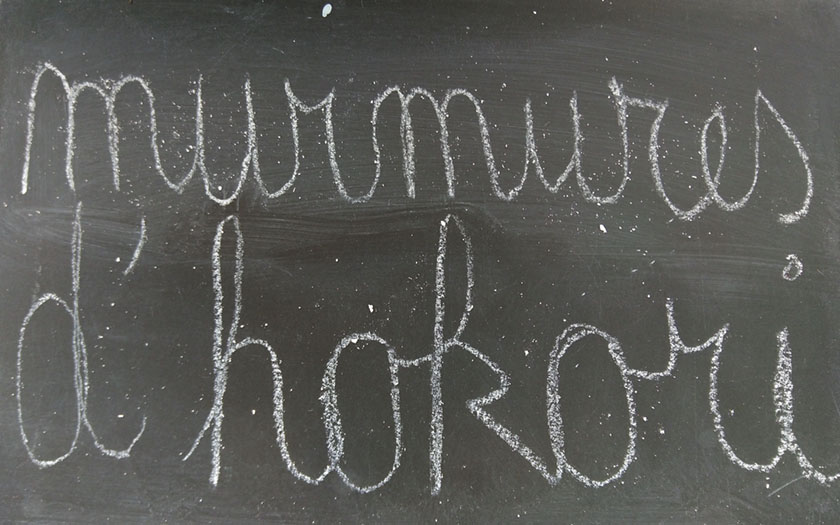 murmures
d'hokori